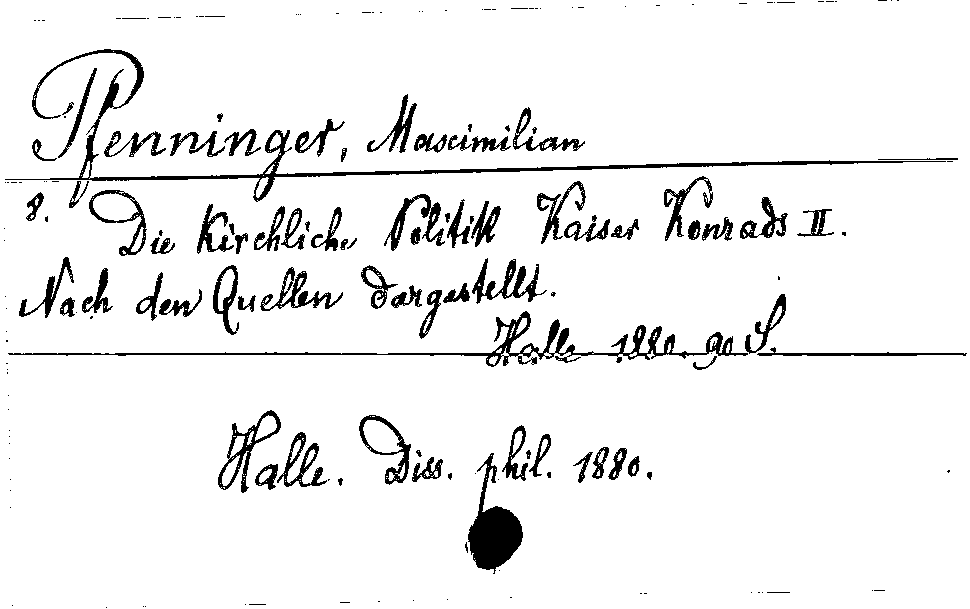 Pfenninger, Maximilian
8. Die kirchliche Politik Kaiser Konrads II.
Nach den Quellen dargestellt.
Halle 1880. 90 S.
Halle. Diss. phil. 1880.